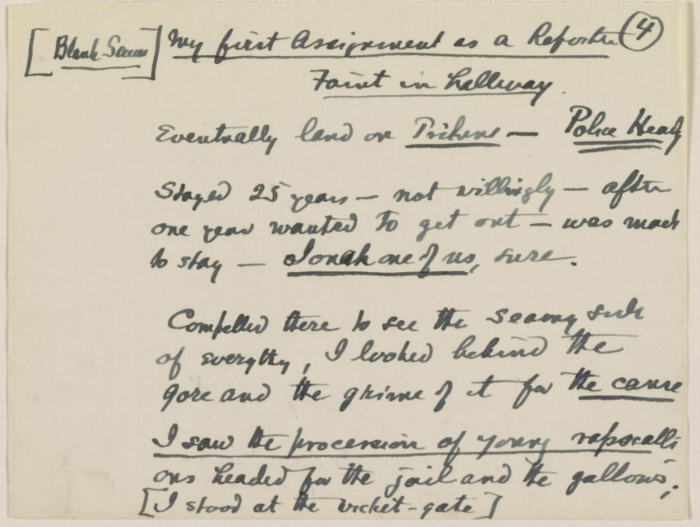 [Blank Screen] My first Assignment as a Reporter (4)
Faint in hallway.
Eventually land on Tribune — Police Headq
Stayed 25 years — not willingly — after
one year wanted to get out — was made
to stay — Jonah one of us, sure.
Compelled there to see the seamy side
of everythg, I looked behind the
gore and the grime of it for the cause
I saw the procession of young rapscalli
ons headed for the jail and the gallows;
[I stood at the wicket-gate]